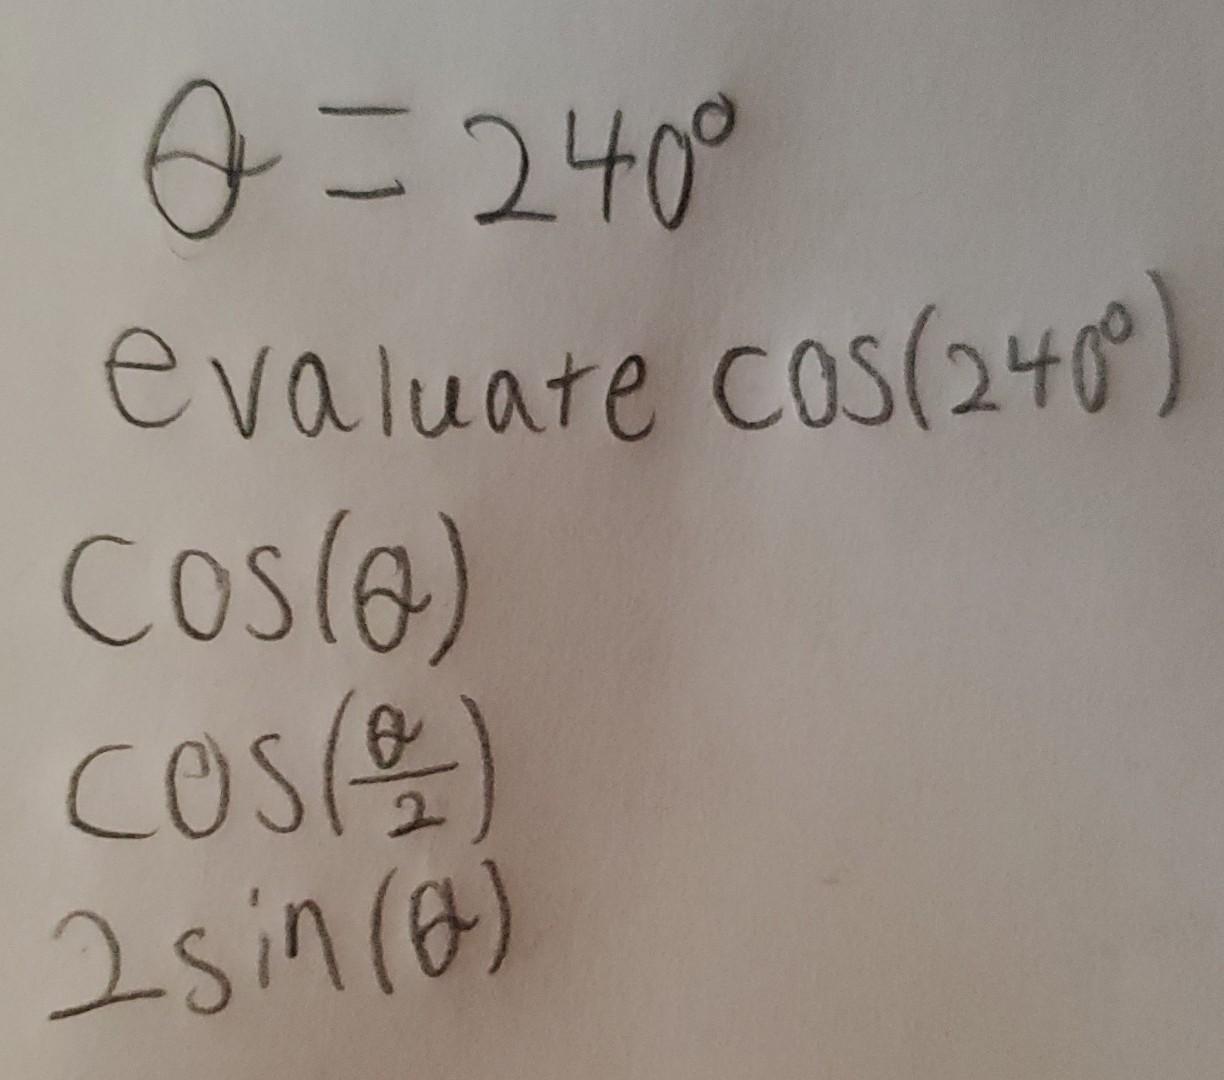 θ = 240°
evaluate cos(240°)
cos(θ)
cos(θ/2)
2sin(θ)